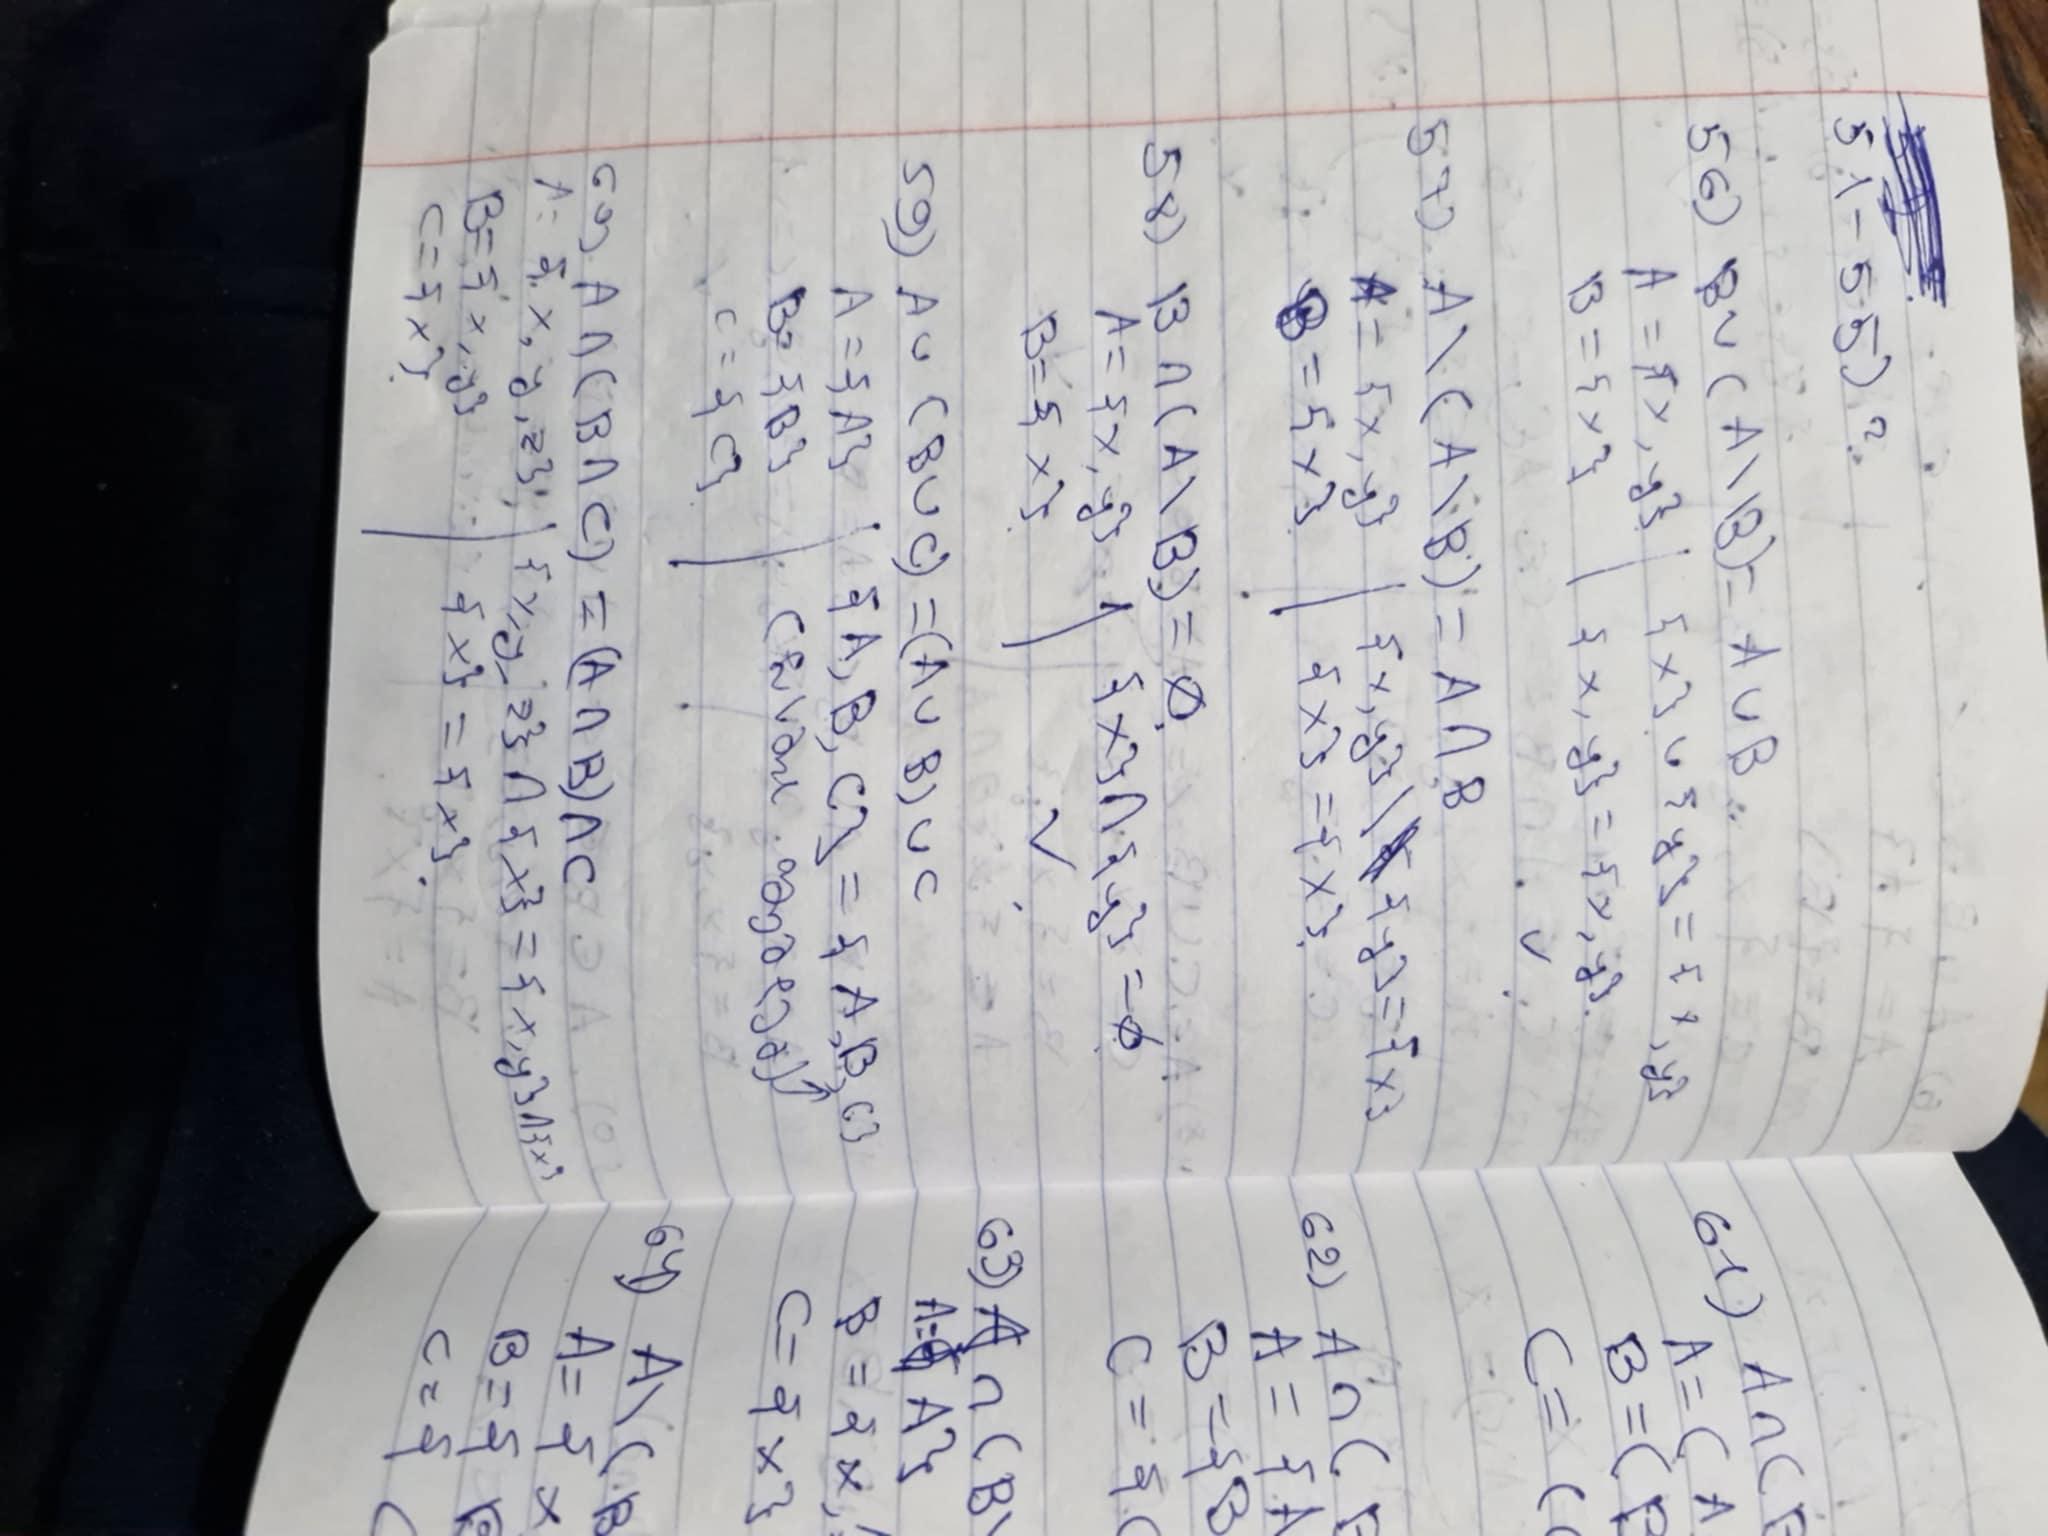 51-55)?
56) B∪(A\B)= A∪B
A = {x, y} | {x} ∪ {y} = {x, y}
B = {x} | {x, y} = {x, y}
57) A\(A\B) = A∩B
A = {x, y} | {x, y} \ {y} = {x}
B = {x} | {x} = {x}
58) B∩(A\B) = ∅
A = {x, y} | {x}∩{y} = ∅
B = {x}
59) A∪(B∪C) = (A∪B)∪C
A = {A} | {A, B, C} = {A, B, C}
B = {B}
C = {C}
60) A∩(B∩C) = (A∩B)∩C
A = {x, y, z} | {x, y, z} ∩ {x} = {x, y}∩{x}
B = {x, y} | {x} = {x}
C = {x}
61) A∩(
A = (A
B = (
C = (
62) A∩(
A = {A
B = {B
C = {C
63) A∩(B\
A = {A}
B = {x,
C = {x}
64) A\(B
A = {x
B = {
C = {